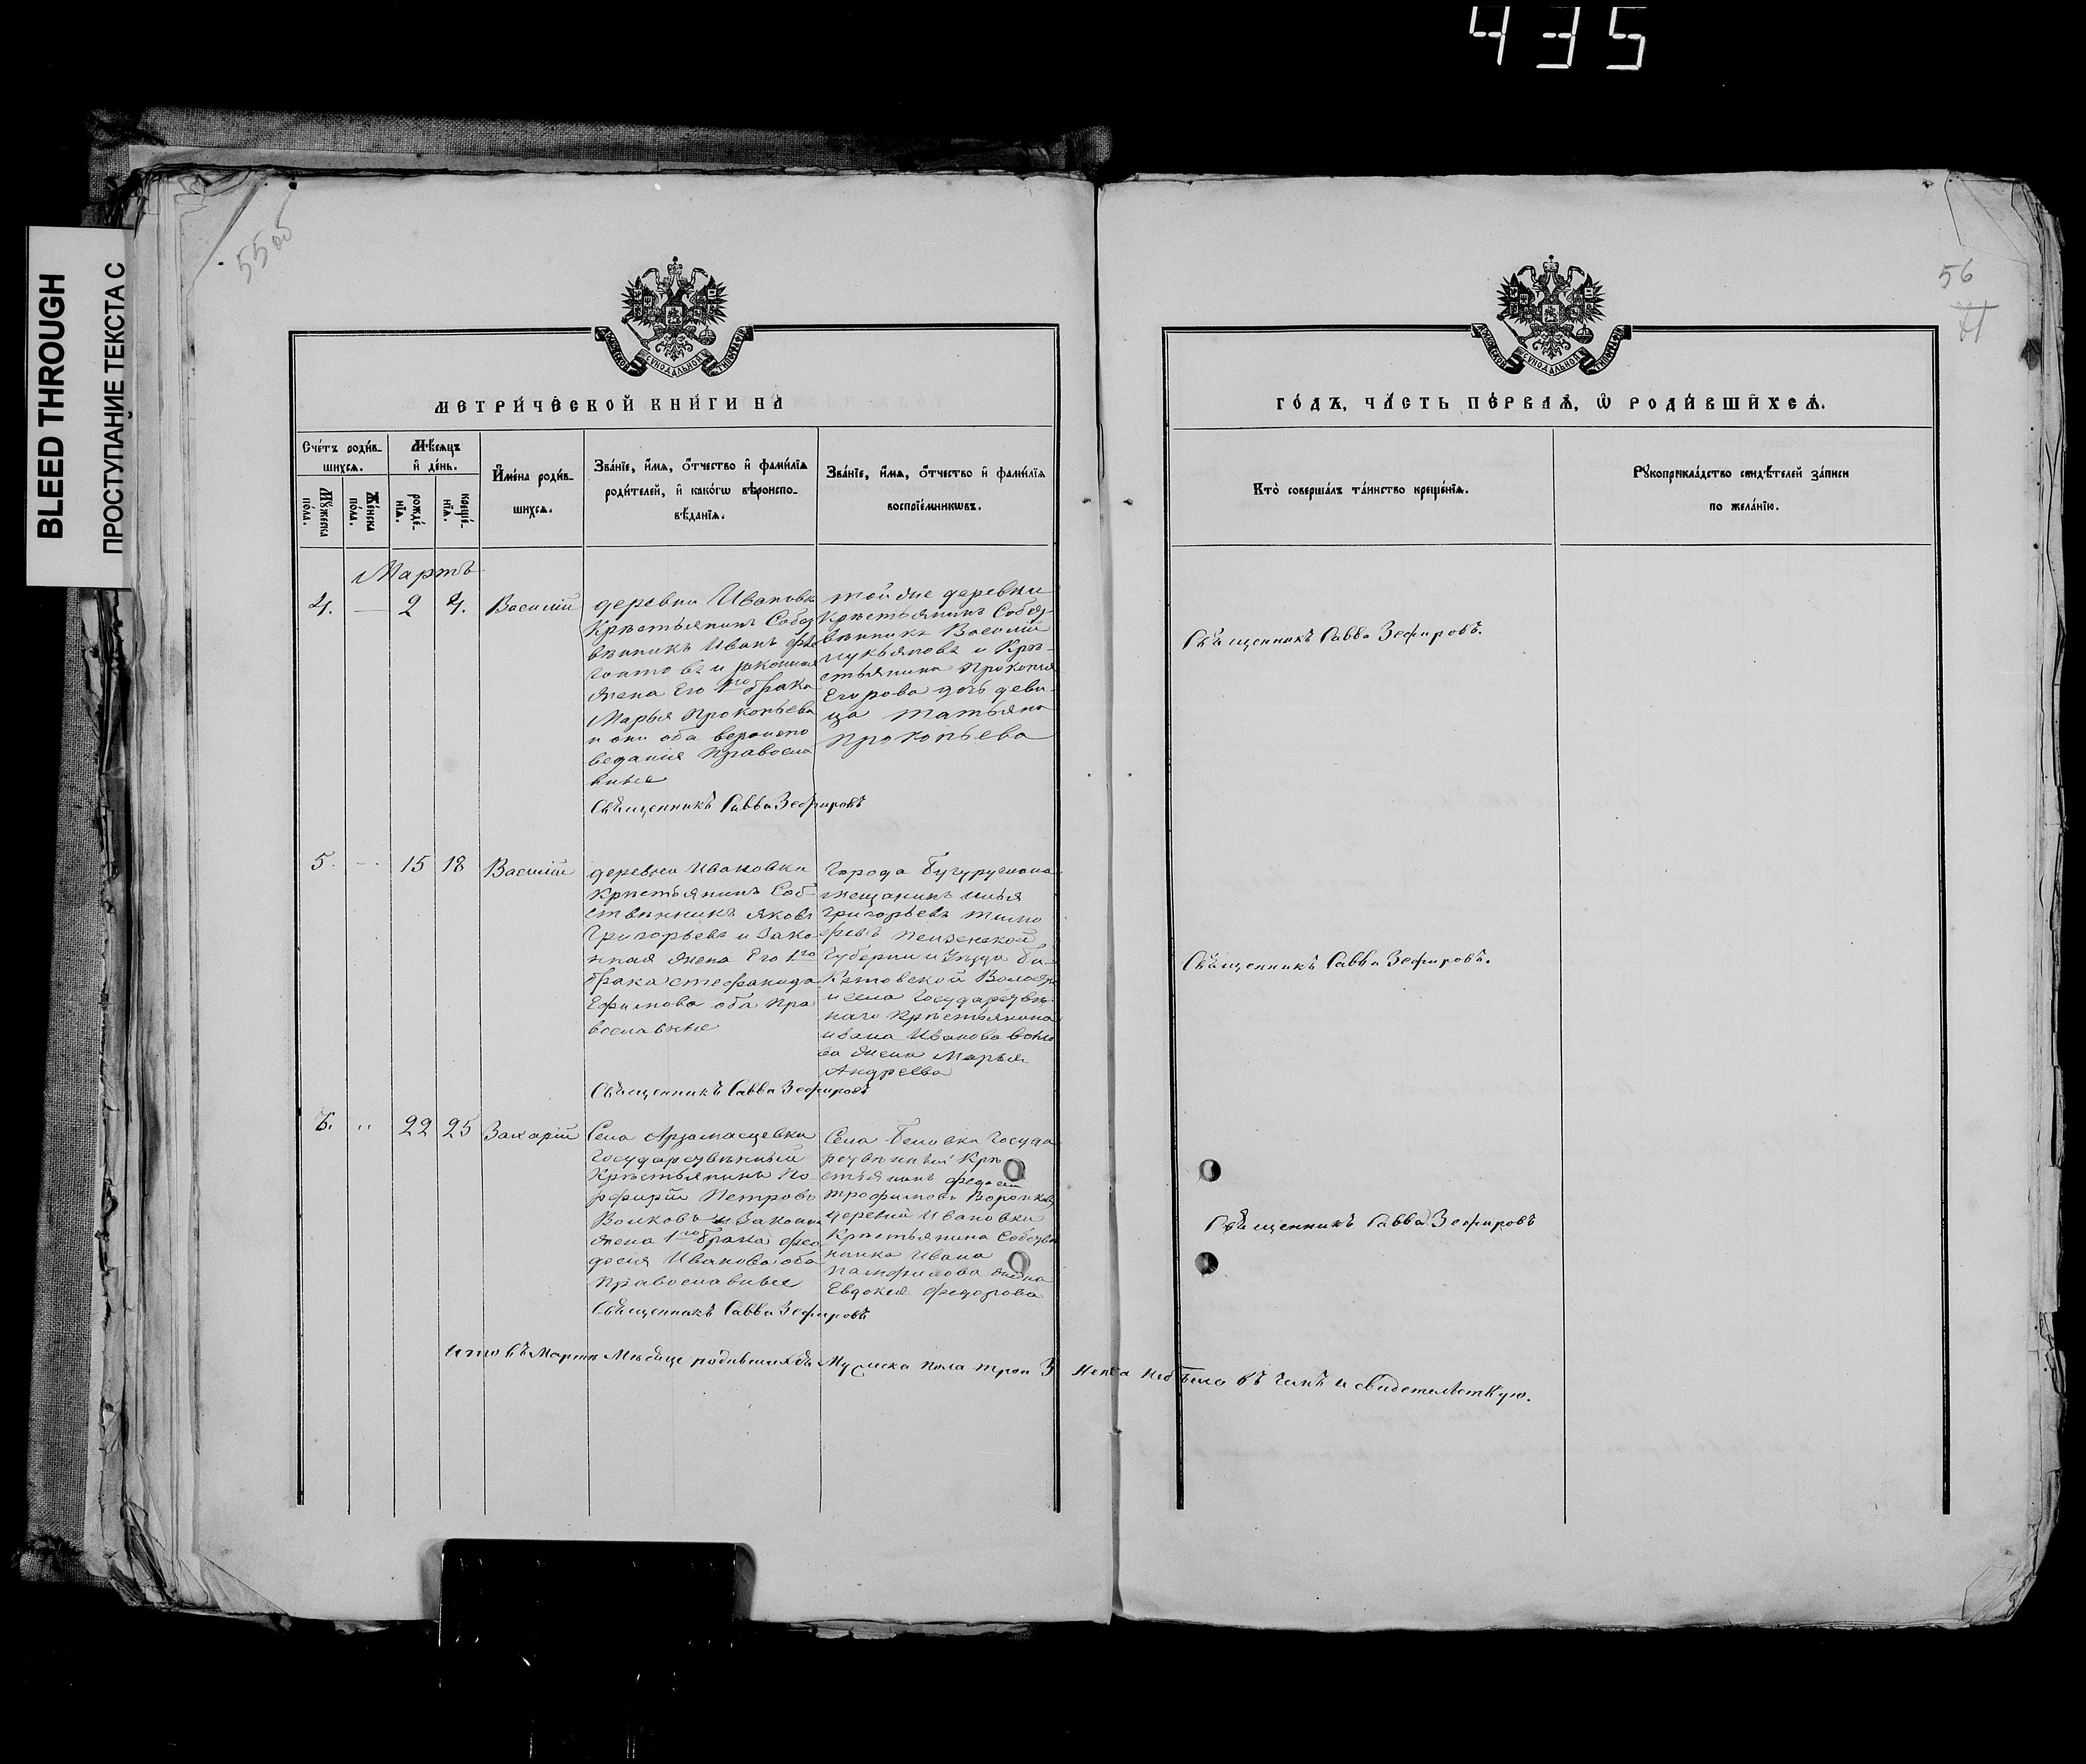 435
BLEED THROUGH
ПРОСТУПАНИЕ ТЕКСТА С
55 об
56
МЕТРИ́ЧЕСКОЙ КНИ́ГИ НА
ГО́ДЪ, ЧА́СТЬ ПЕ́РВАѦ, Ѡ҆ РОДИ́ВШИХСѦ.
Сче́тъ роди́в-
шихсѧ.
Мѣ́сѧцъ
и҆ де́нь.
Мꙋ́жеска
по́ла.
Же́нска
по́ла.
рожде́-
нїѧ.
креще́-
нїѧ.
И҆мена̀ роди́в-
шихсѧ.
Зва́нїе, и҆́мѧ, ѻ҆́тчество и҆ фами́лїѧ
роди́телей, и҆ како́гѡ вѣроиспо-
вѣ́данїѧ.
Зва́нїе, и҆́мѧ, ѻ҆́тчество и҆ фами́лїѧ
воспрїе́мникѡвъ.
Кто̀ соверша́лъ та́инство креще́нїѧ.
Рꙋкоприкла́дство свидѣ́телей за́писи
по жела́нїю.
Мартъ
4. — 2 4. Василій
деревни Ивановки
Крѣстьянинъ Собст
вѣнникъ Иванъ
и законная
жена Его 1го брака
Марья Прокопьева
и они оба вероиспо
ведания Правосла
вные
Священникъ Савва Зефировъ
тойже деревни
Крѣстьянинъ Собст
вѣнникъ Василій
Лукьяновъ и Крѣ-
стьянина Прокопия
Егорова дочь деви-
ца Татьяна
Прокопьева
Священникъ Савва Зефировъ.
5. 15 18 Василій
деревни Ивановки
Крѣстьянинъ Соб-
ствѣнникъ Яковъ
Григорьевъ и Зако-
нная жена Его 1го
брака Стефанида
Ефимова оба Пра
вославные
Священникъ Савва Зефировъ
Города Бугуруслана
мещанинъ Илья
Григорьевъ Тимо
фѣвъ Пензенской
Губернии и Уезда
Волости
и села Государствѣ-
наго Крѣстьянина
Ивана Иванова
жена Марья
Андреева
Священникъ Савва Зефировъ.
6. 22 25 Захарій
Села Арзамасцевки
Государствѣнный
Крѣстьянинъ По-
рфирій Петровъ
Волковъ и Законная
жена 1го брака Фео
досия Иванова оба
Православные
Священникъ Савва Зефировъ
Села Беловки Госуда
рствѣнный Крѣ
стьянинъ
Трофимовъ Воронковъ
деревни Ивановки
Крѣстьянина Собств
нника Ивана
Памфилова жена
Евдокия Федорова
Священникъ Савва Зефировъ
Итого въ Мартѣ Месяце родившихся Мужска пола трои 3 Женска небыло въ чемъ и свидетельствую.